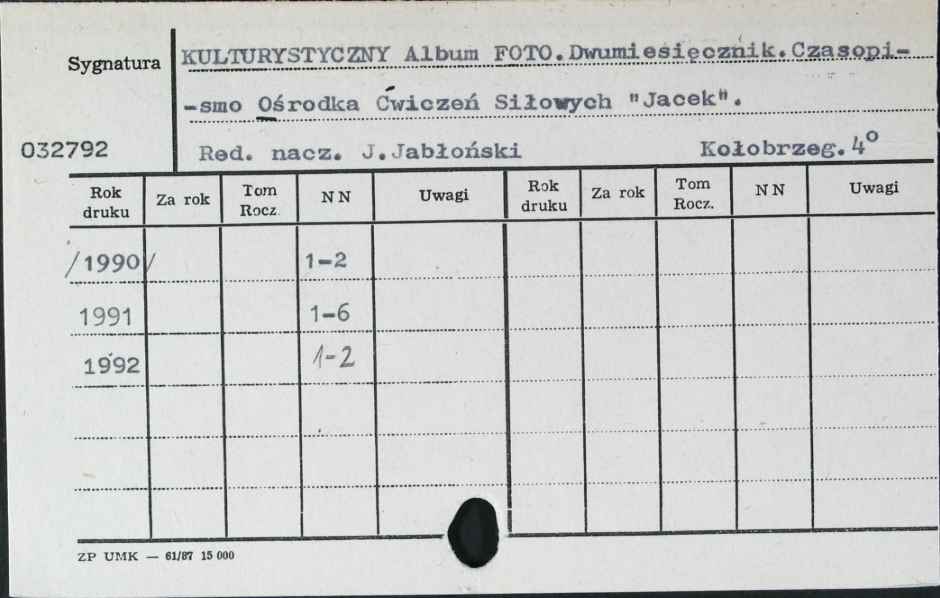 Sygnatura KULTURYSTYCZNY Album FOTO.Dwumiesięcznik.Czasopi-
-smo Ośrodka Ćwiczeń Siłowych "Jacek".
032792 Red. nacz. J.Jabłoński Kołobrzeg.4°
Rok druku Za rok Tom Rocz. NN Uwagi Rok druku Za rok Tom Rocz. NN Uwagi
/1990/ 1-2
1991 1-6
1992 1-2
ZP UMK — 61/87 15 000